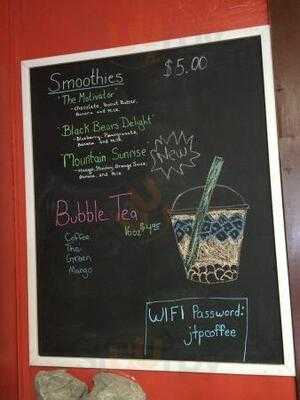 Smoothies $5.00
"The Motivator"
- Chocolate, Peanut Butter,
Banana and Milk.
"Black Bears Delight"
- Blueberry, Pomegranate,
Banana and Milk
"Mountain Sunrise"
New
- Mango, Orange Juice,
Banana, and Milk
Bubble Tea
16oz $4.95
Coffee
Thai
Green
Mango
WIFI Password:
jtpcoffee